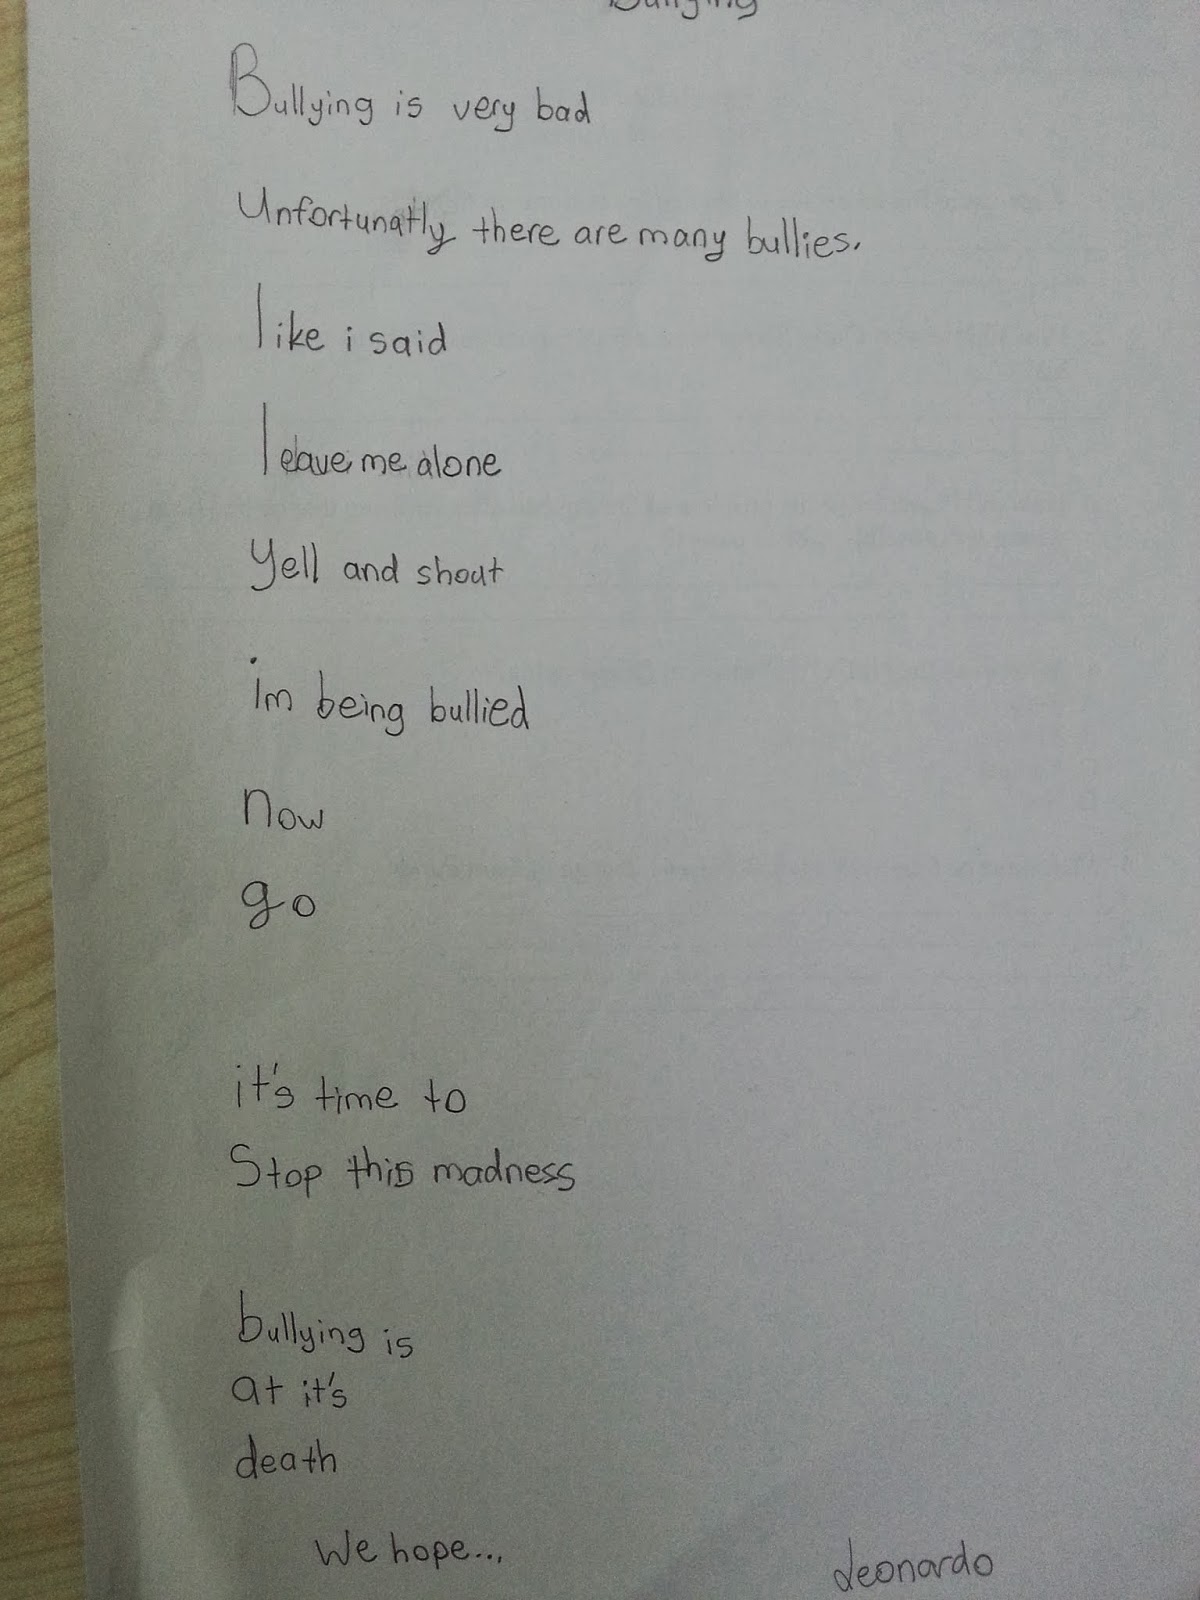 Bullying
Bullying is very bad
Unfortunatly there are many bullies.
like i said
leave me alone
Yell and shout
im being bullied
Now
go
it's time to
Stop this madness
bullying is
at it's
death
We hope...
Leonardo